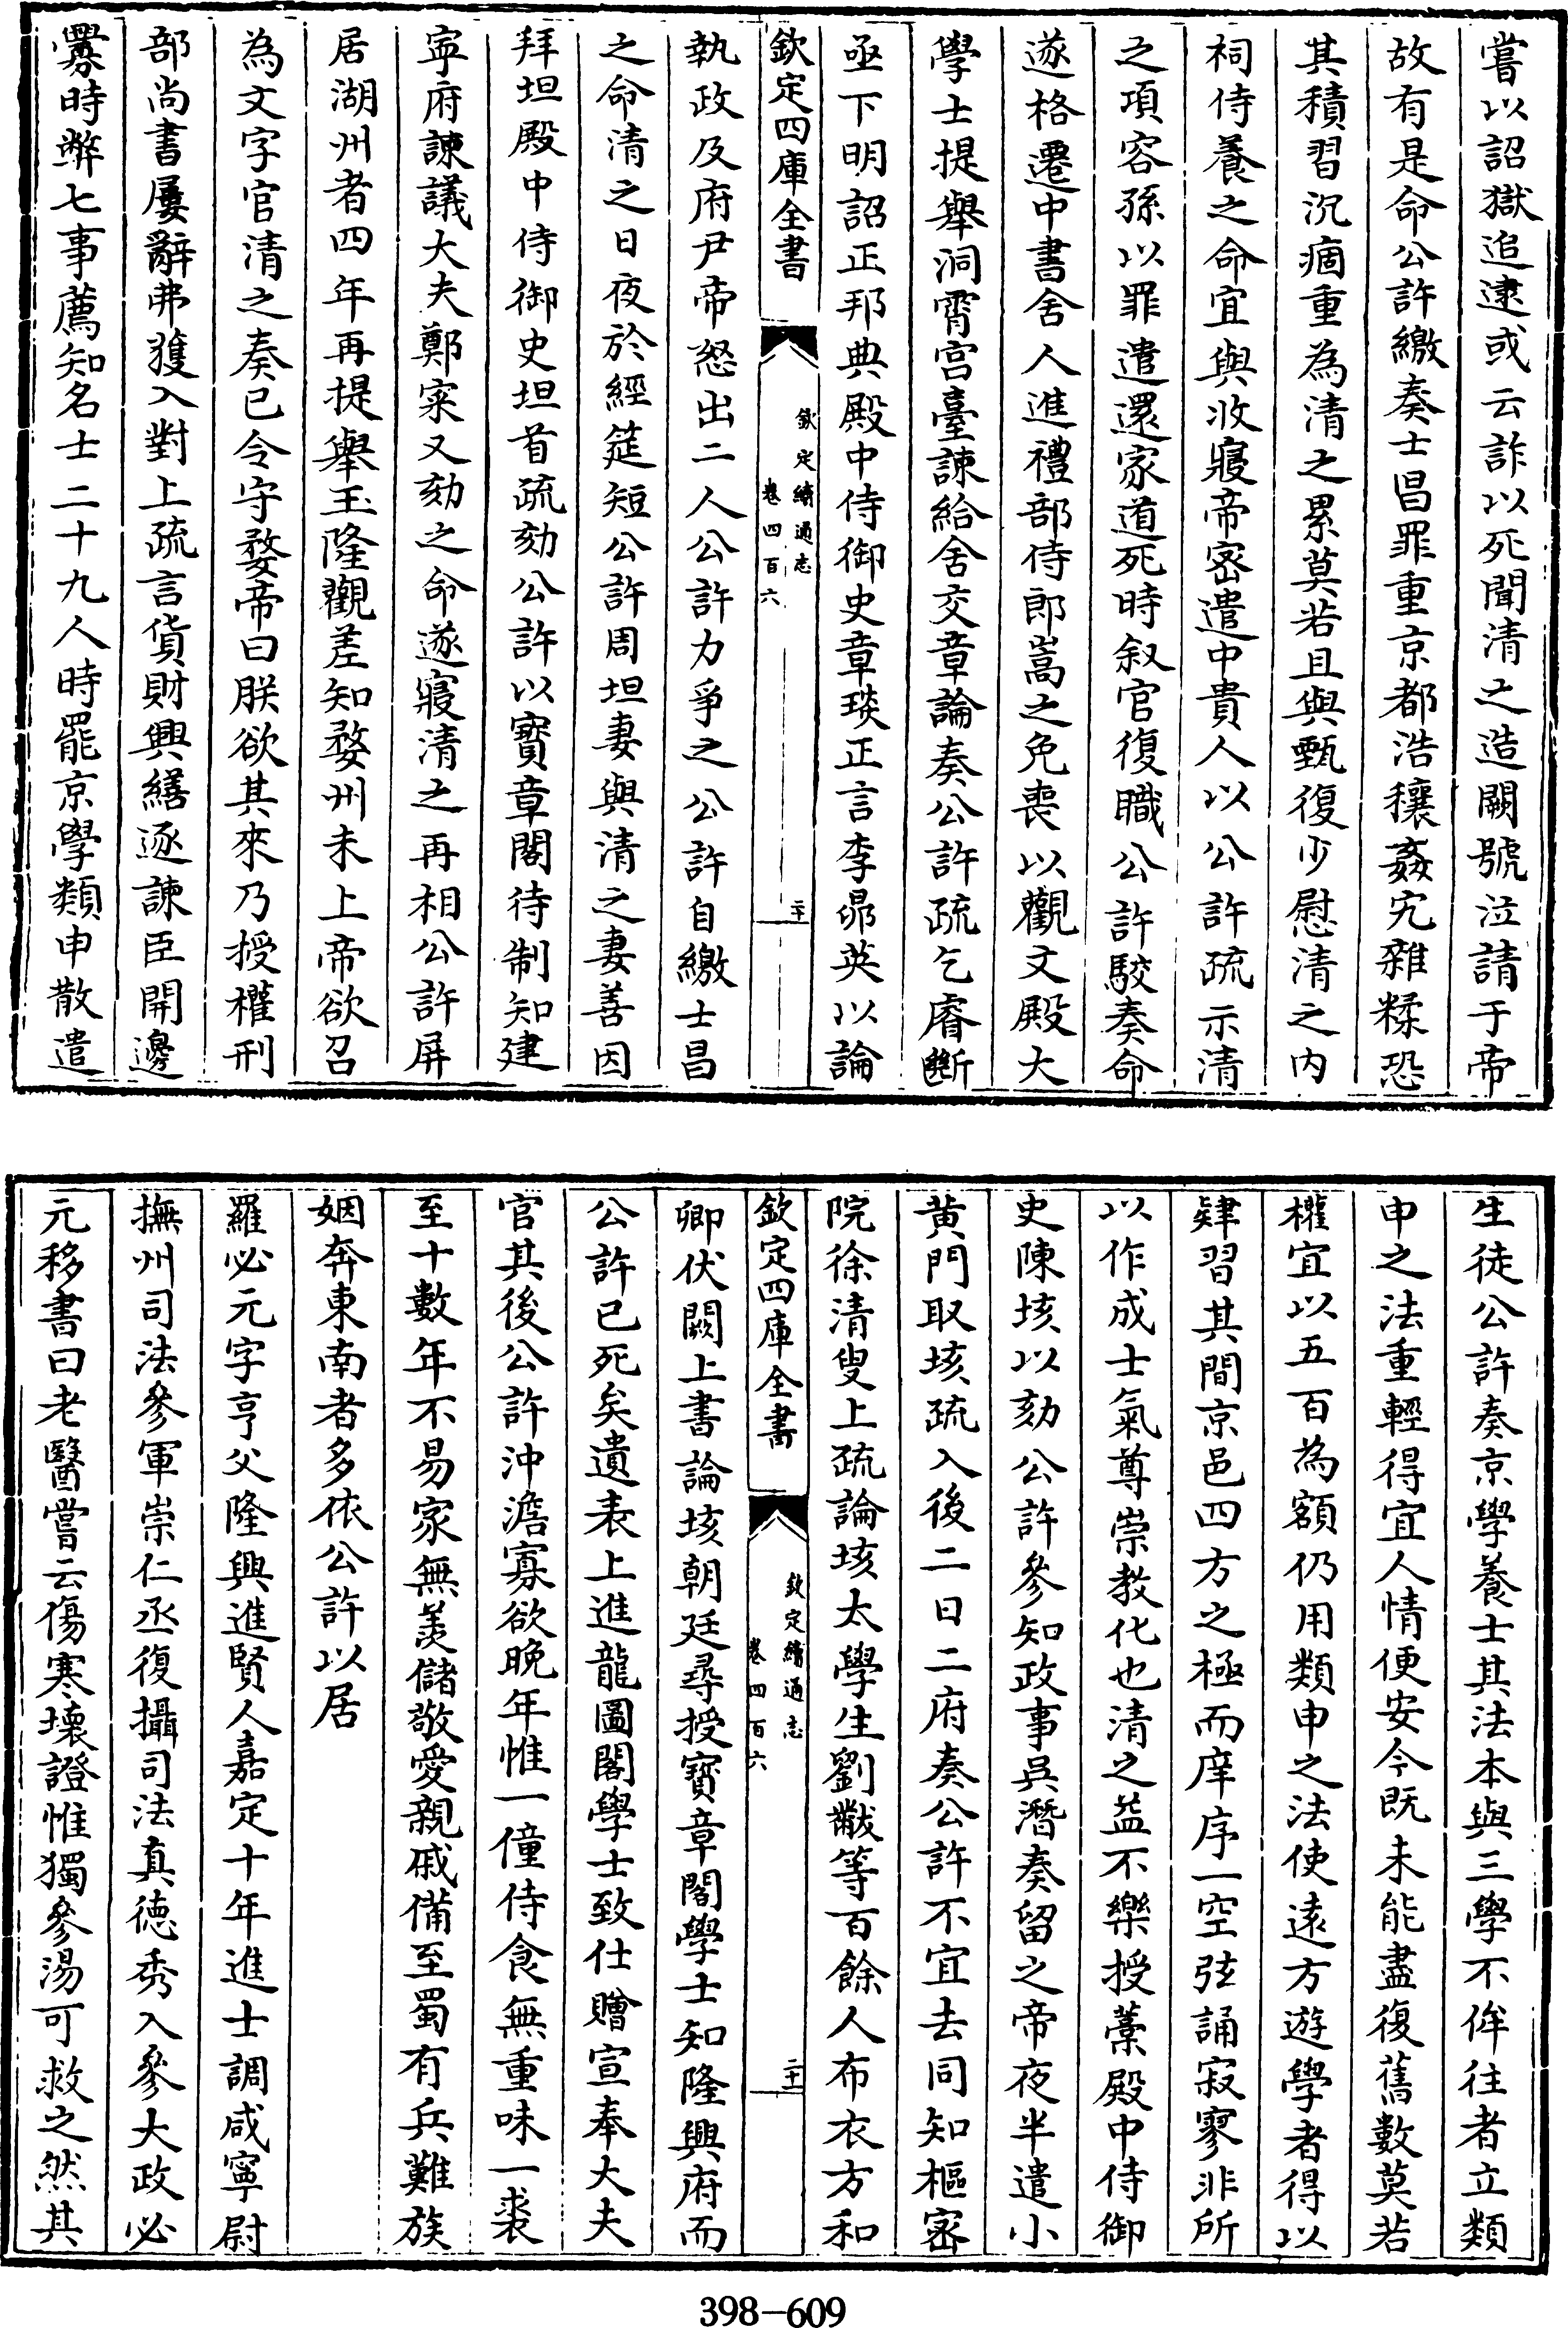 嘗以詔獄追逮或云詐以死聞清之造闕號泣請于帝
故有是命公許繳奏士昌罪重京都浩穰姦宄雜糅恐
其積習沉痼重為清之累莫若且與甄復少慰清之内
祠侍養之命宜與收寢帝密遣中貴人以公許疏示清
之項容孫以罪遣還家道死時叙官復職公許駮奏命
遂格遷中書舍人進禮部侍郎嵩之免喪以觀文殿大
學士提舉洞霄宫臺諫給舍交章論奏公許疏乞睿斷
亟下明詔正邦典殿中侍御史章琰正言李昴英以論
欽定四庫全書
欽定續通志
卷四百六
二十
執政及府尹帝怒出二人公許力爭之公許自繳士昌
之命清之日夜於經筵短公許周坦妻與清之妻善因
拜坦殿中侍御史坦首疏劾公許以寳章閣待制知建
寧府諫議大夫鄭寀又劾之命遂寢清之再相公許屏
居湖州者四年再提舉玉隆觀差知婺州未上帝欲召
為文字官清之奏已令守婺帝曰朕欲其來乃授權刑
部尚書屢辭弗獲入對上疏言貨財興繕逐諫臣開邊
釁時弊七事薦知名士二十九人時罷京學類申散遣
生徒公許奏京學養士其法本與三學不侔往者立類
申之法重輕得宜人情便安今既未能盡復舊數莫若
權宜以五百為額仍用類申之法使遠方遊學者得以
肄習其間京邑四方之極而庠序一空弦誦寂寥非所
以作成士氣尊崇教化也清之益不樂授藁殿中侍御
史陳垓以劾公許參知政事吳潛奏留之帝夜半遣小
黄門取垓疏入後二日二府奏公許不宜去同知樞密
院徐清叟上疏論垓太學生劉黻等百餘人布衣方和
欽定四庫全書
欽定續通志
卷四百六
二十一
卿伏闕上書論垓朝廷尋授寳章閣學士知隆興府而
公許已死矣遺表上進龍圖閣學士致仕贈宣奉大夫
官其後公許沖澹寡欲晚年惟一僮侍食無重味一裘
至十數年不易家無羨儲敬愛親戚備至蜀有兵難族
姻奔東南者多依公許以居
羅必元字亨父隆興進賢人嘉定十年進士調咸寧尉
撫州司法參軍崇仁丞復攝司法真德秀入參大政必
元移書曰老醫嘗云傷寒壞證惟獨參湯可救之然其
398-609